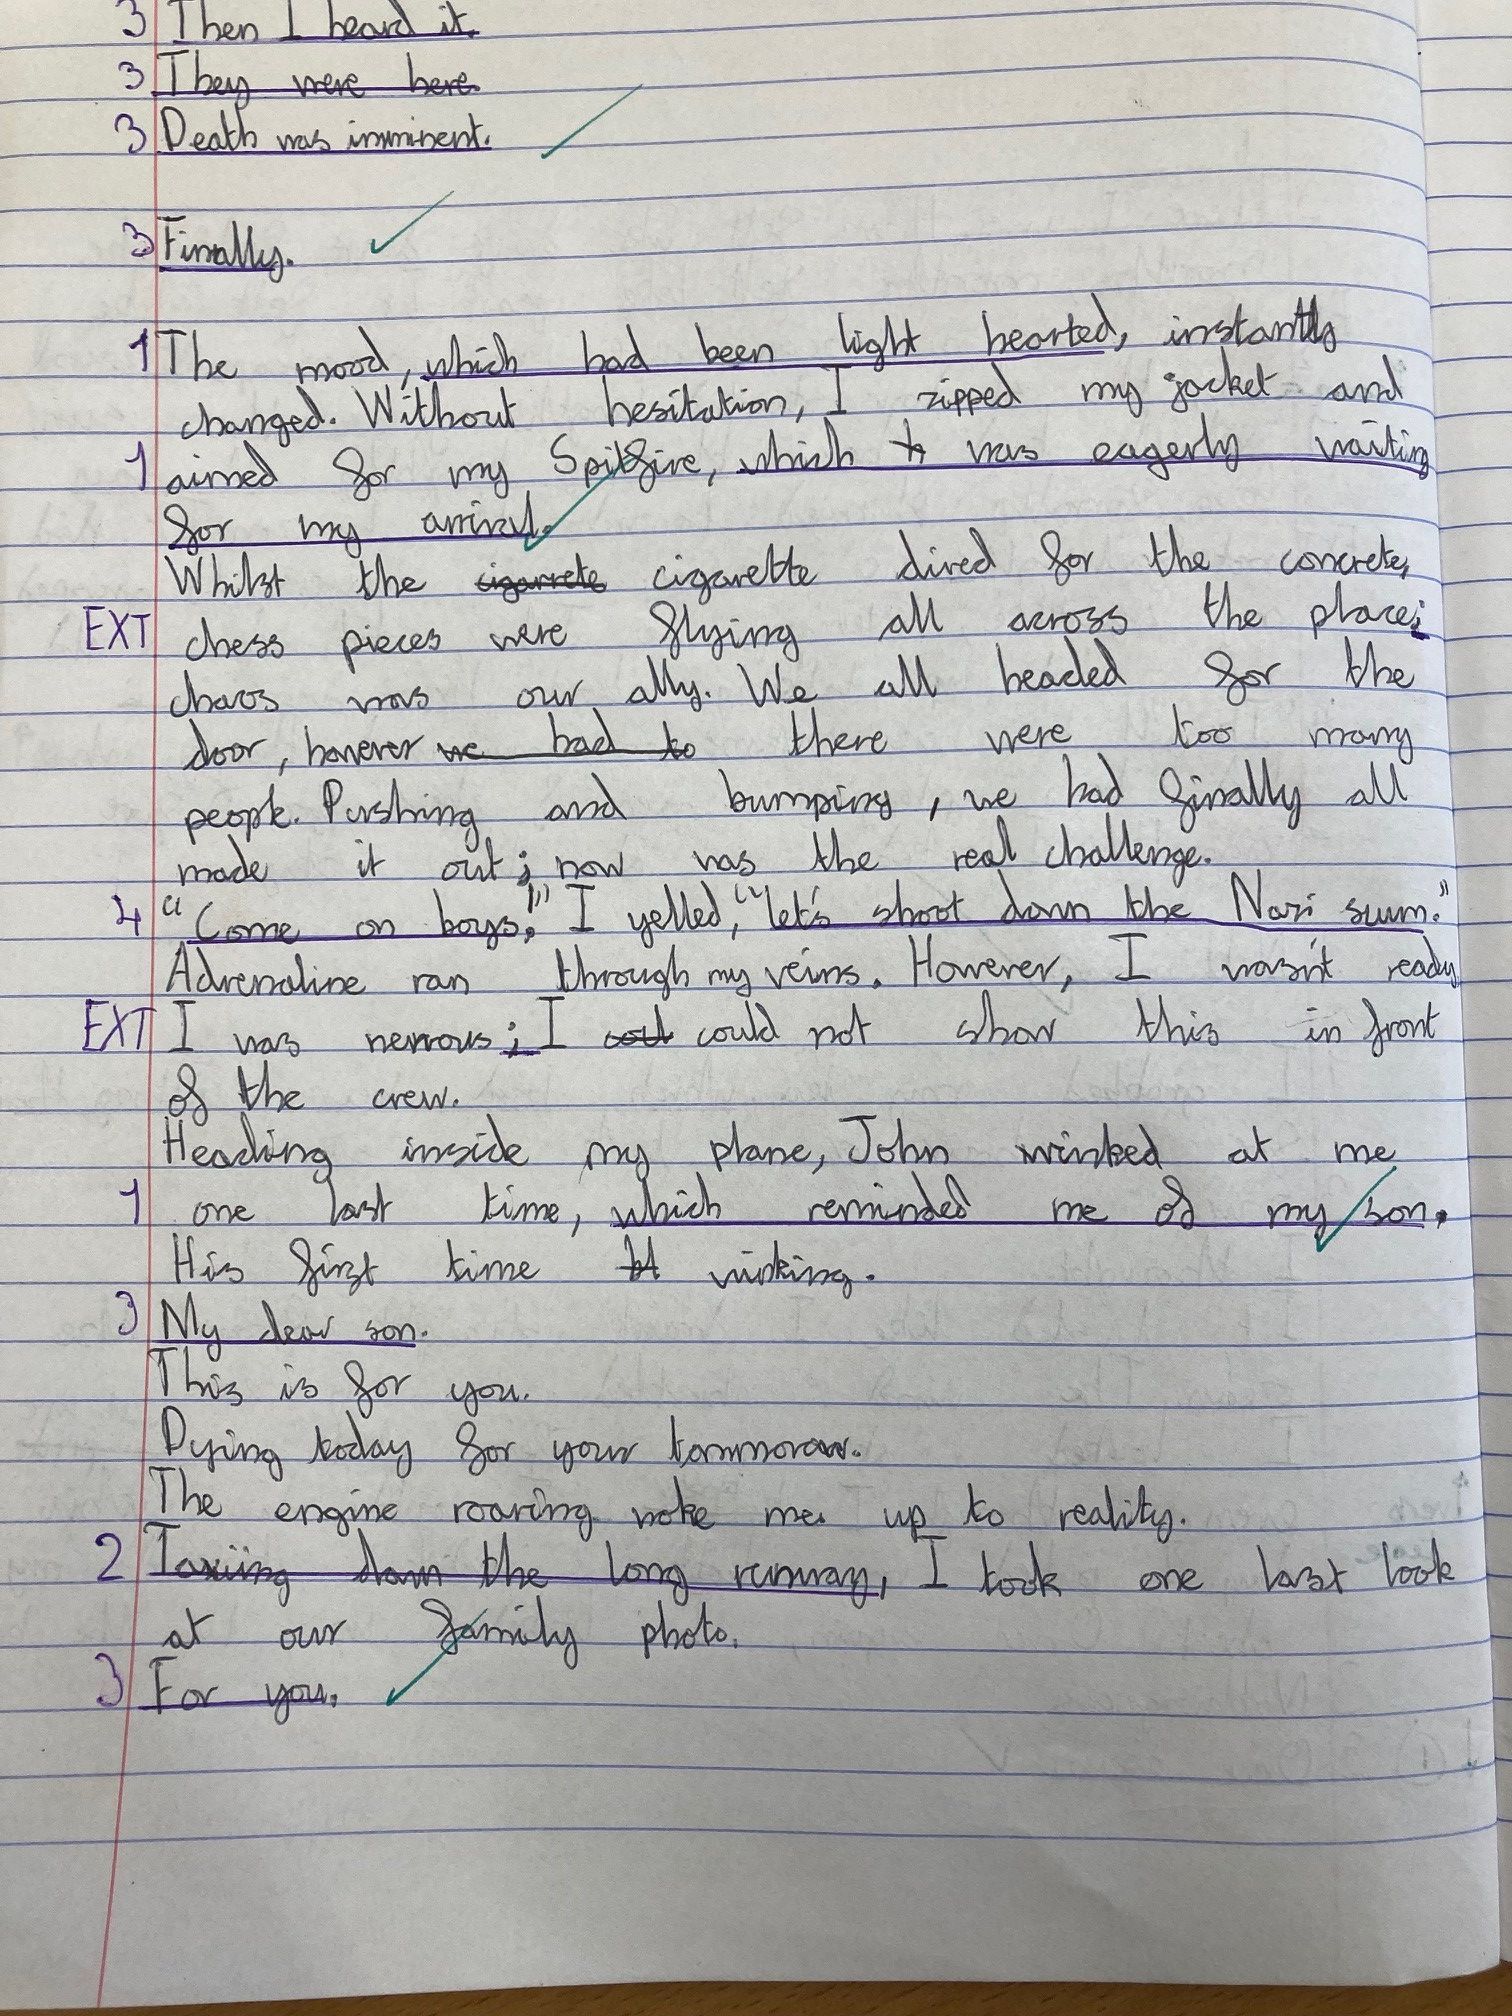 3 Then I heard it.
3 They were here.
3 Death was imminent.
3 Finally.
1 The mood, which had been light hearted, instantly
changed. Without hesitation, I zipped my jacket and
1 aimed for my Spitfire, which was eagerly waiting
for my arrival.
Whilst the cigarrete cigarette dived for the concrete,
EXT chess pieces were flying all across the place;
chaos was our ally. We all headed for the
door, however we had to there were too many
people. Pushing and bumping, we had finally all
made it out; now was the real challenge.
4 "Come on boys," I yelled, "let's shoot down the Nazi scum."
Adrenaline ran through my veins. However, I wasn't ready
EXT I was nervous; I coul could not show this in front
of the crew.
Heading inside my plane, John winked at me
1 one last time, which reminded me of my son.
His first time winking.
3 My dear son.
This is for you.
Dying today for your tommorow.
The engine roaring woke me up to reality.
2 Taxiing down the long runway, I took one last look
at our family photo.
3 For you.